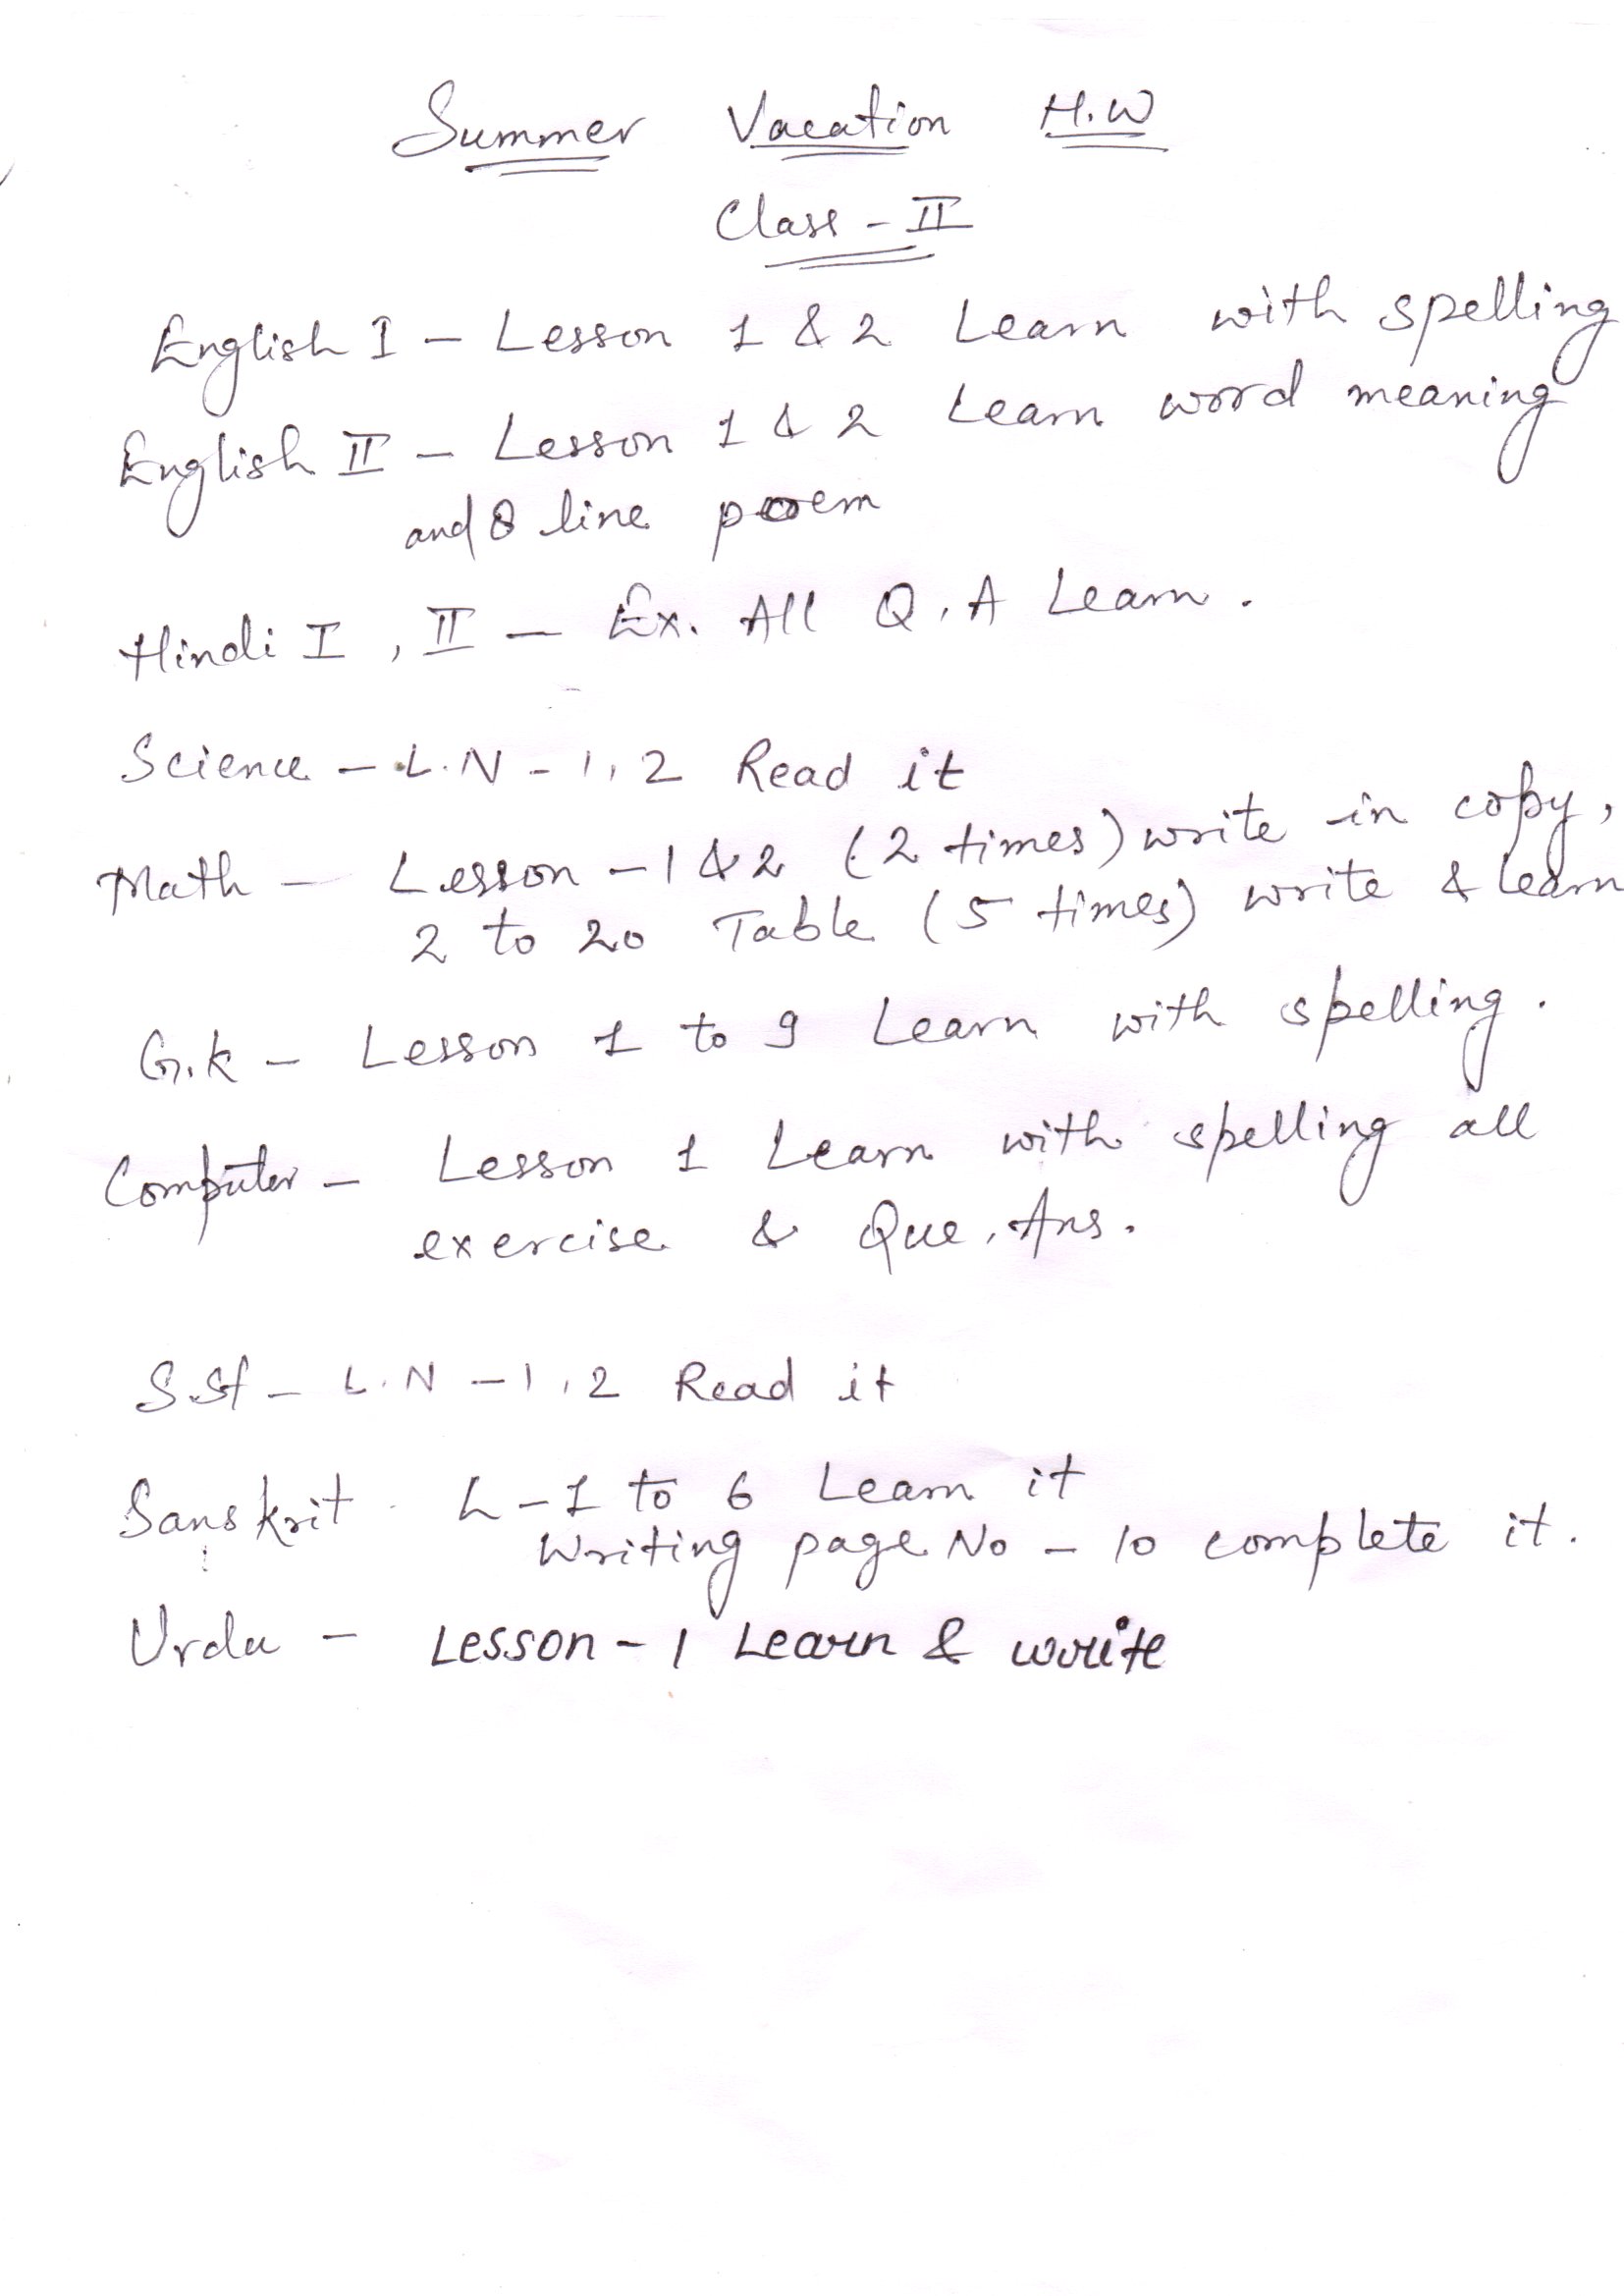 Summer Vacation H.W
Class - II
English I - Lesson 1 & 2 Learn with spelling
English II - Lesson 1 & 2 Learn word meaning
and 8 line poem
Hindi I, II - Ex. All Q.A Learn.
Science - L.N - 1, 2 Read it
Math - Lesson - 1 & 2 (2 times) write in copy,
2 to 20 Table (5 times) write & learn
G.k - Lesson 1 to 9 Learn with spelling.
Computer - Lesson 1 Learn with spelling all
exercise & Que, Ans.
S.St - L.N - 1, 2 Read it
Sanskrit - L - 1 to 6 Learn it
Writing page No - 10 complete it.
Urdu - Lesson - 1 Learn & write